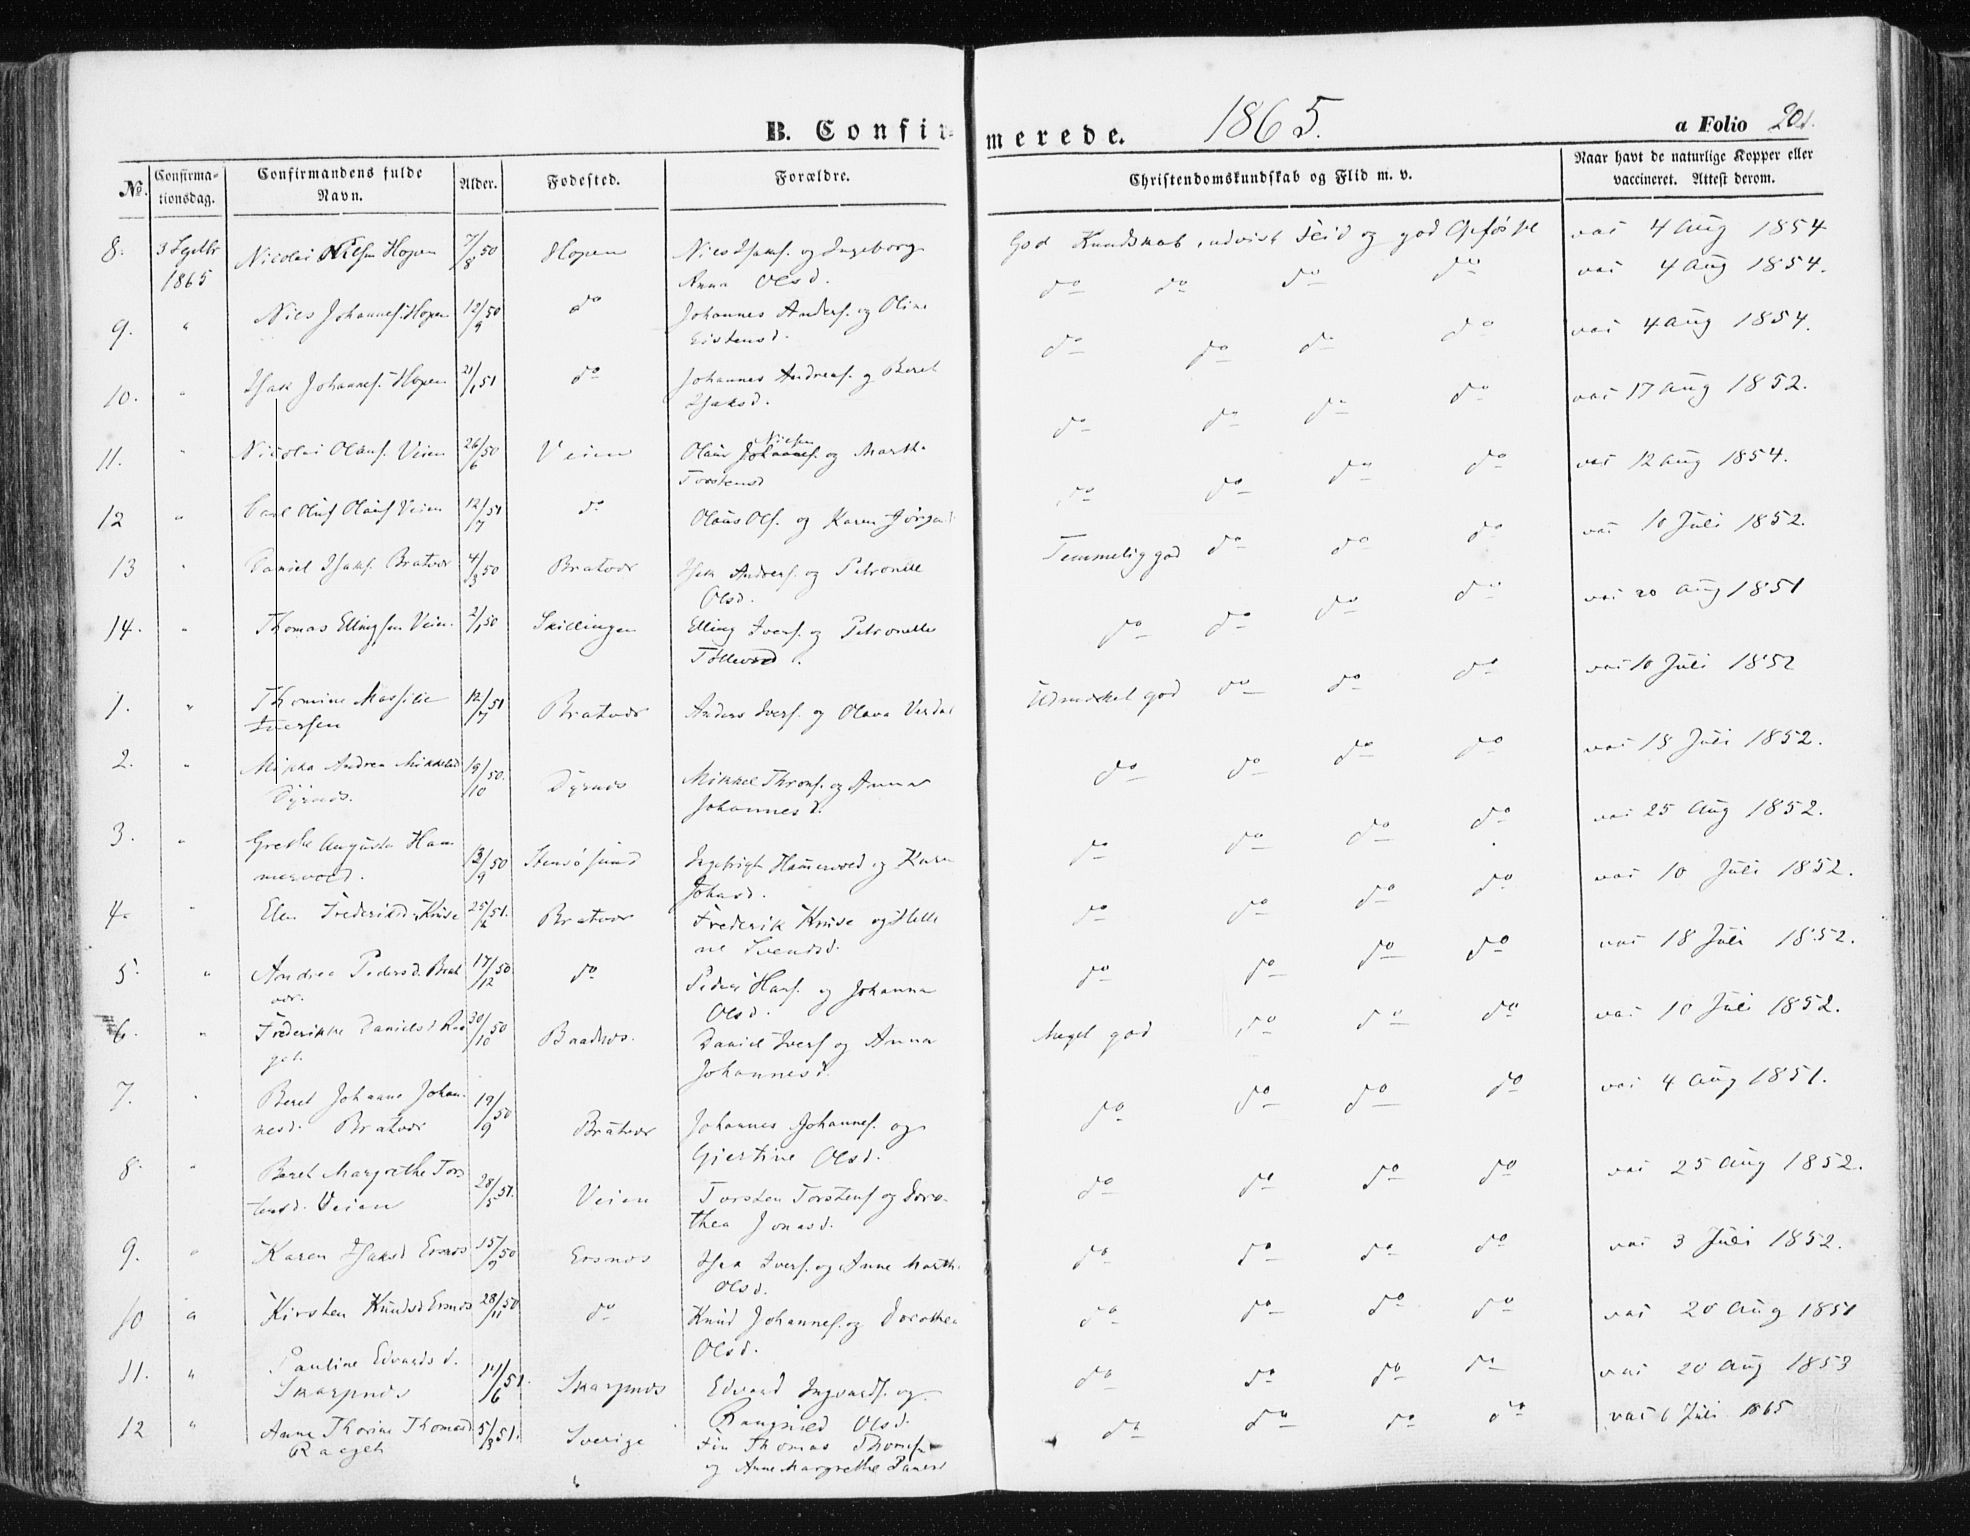 B. Confirmerede. 1865. a Folio 201.
No. Confirmationsdag. Confirmandens fulde Navn. Alder. Fødested. Forældre. Christendomskundskab og Flid m. v. Naar havt de naturlige Kopper eller vaccineret. Attest derom.
8. 3 Septbr 1865 Nicolai Hopen 7/8 50 Hopen Niels Isaks. og Ingeborg Anna Olsd. God Kundskab, udvist Flid og god Opførsel vac 4 Aug 1854
9. " Niels Johannes. Hopen 12/9 50 do Johannes Anders. og Oline Eistensd. do do do do vac 4 Aug 1854.
10. " Isak Johannes. Hopen 21/1 51 do Johannes Andreas. og Beret Isaksd. do do do do vac 4 Aug 1854.
11. " Nicolai Olaus. Veien 26/6 50 Veien Olaus Nielsen og Martha Torstensd do do do do vac 17 Aug 1852.
12 " Carl Oluf Olaus. Veien 12/7 51 do Olaus Ols. og Karen Jørgensd do do do do vac 12 Aug 1854.
13 " Daniel Isaks. Bratvær 4/3 50 Bratvær Isak Anders. og Petronelle Olsd. Temmelig god do do do vac 10 Juli 1852.
14. " Thomas Ellingsen Veien 2/1 50 Skillingen Elling Ivers. og Petronelle do do do do vac 20 Aug 1851
1. " Thomine Massilie Iversen 12/7 51 Bratvær Anders Ivers. og Olava Udmærket god do do do vac 10 Juli 1852
2. " Andrea Mikkelsd Dyrnæs. 19/10 50. Dyrnæs Mikkel Throns. og Anna Johannesd. do do do do vac 18 Juli 1852.
3. " Grethe Augusta Hammervold. 13/9 50 Stensøsund Ingebrigt Hammervold og Karen Johnsd. do do do do vac 25 Aug 1852.
4. " Elen Frederiksd. Kruse 25/ 51. Bratvær Frederik Kruse og Hellene Svendsd. do do do do vac 10 Juli 1852.
5. " Andrea Pedersd. Bratvær. 17/12 50. do Peder Hans. og Johanna Olsd. do do do do vac 18 Juli 1852.
6. " Frederikke Danielsd. 30/10 50 Daniel Ivers og Anna Johannesd. Meget god do do do vac 10 Juli 1852.
7. " Beret Johanne Johannesd. Bratvær 19/9 50 Bratvær Johannes Johannes. og Gjertine Olsd. do do do do vac 4 Aug 1851.
8. " Beret Margrethe Torstensd. Veien 28/5 51. Veien Torsten Torstens og Dorothea Jonasd. do do do do vac 25 Aug 1852.
9. " Karen Isaksd Ersnæs 15/9 50 Ersnæs Isak Ivers. og Anne Marth. Olsd. do do do do vac 3 Juli 1852.
10 " Kirsten Knudsd Ersnæs 28/11 50. do Knud Johannes. og Dorothea Olsd. do do do do vac 20 Aug 1851
11. " Pauline Edvardsd. Skarpnæs 14/6 51. Skarpnæs Edvard Ingvards. og Rangnild Olsd. do do do do vac 20 Aug 1853
12 " Anne Thorine Thomasd 5/3 51. Sverige Fin Thomas Thomes. og Anne Margrethe do do do do vac 6 Juli 1865